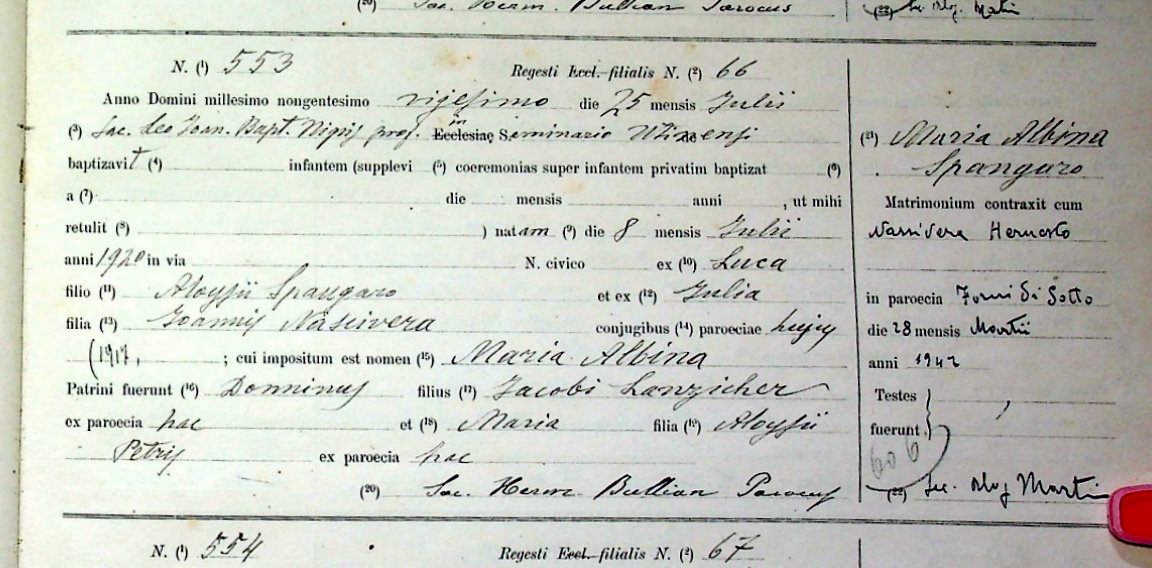 (20) Sac. Herm. Bullian Parocus
(22) Sac. Aloj. Martin
N. (1) 553 Regesti Eccl.-filialis N. (2) 66
Anno Domini millesimo nongentesimo vigesimo die 25 mensis Julii
(3) Sac. Leo Joan. Bapt. Nigris prof. in Ecclesiae Seminario Utinensi
baptizavit (4) infantem (supplevi (5) coeremonias super infantem privatim baptizat (6)
a (7) die mensis anni , ut mihi
retulit (8) ) natam (9) die 8 mensis Julii
anni 1920 in via N. civico ex (10) Luca
filio (11) Aloysii Spangaro et ex (12) Julia
filia (13) Joannis Nassivera conjugibus (14) paroeciae hujus
(1917, ; cui impositum est nomen (15) Maria Albina
Patrini fuerunt (16) Dominus filius (17) Jacobi Lanzicher
ex paroecia hac et (18) Maria filia (19) Aloysii
Petris ex paroecia hac
(20) Sac. Herm. Bullian Parocus
(21) Maria Albina
Spangaro
Matrimonium contraxit cum
Nassivera Hernesto
in paroecia Forni di Sotto
die 28 mensis Martii
anni 1942
Testes
fuerunt
606
(22) Sac. Aloj Martin
N. (1) 554 Regesti Eccl.-filialis N. (2) 67